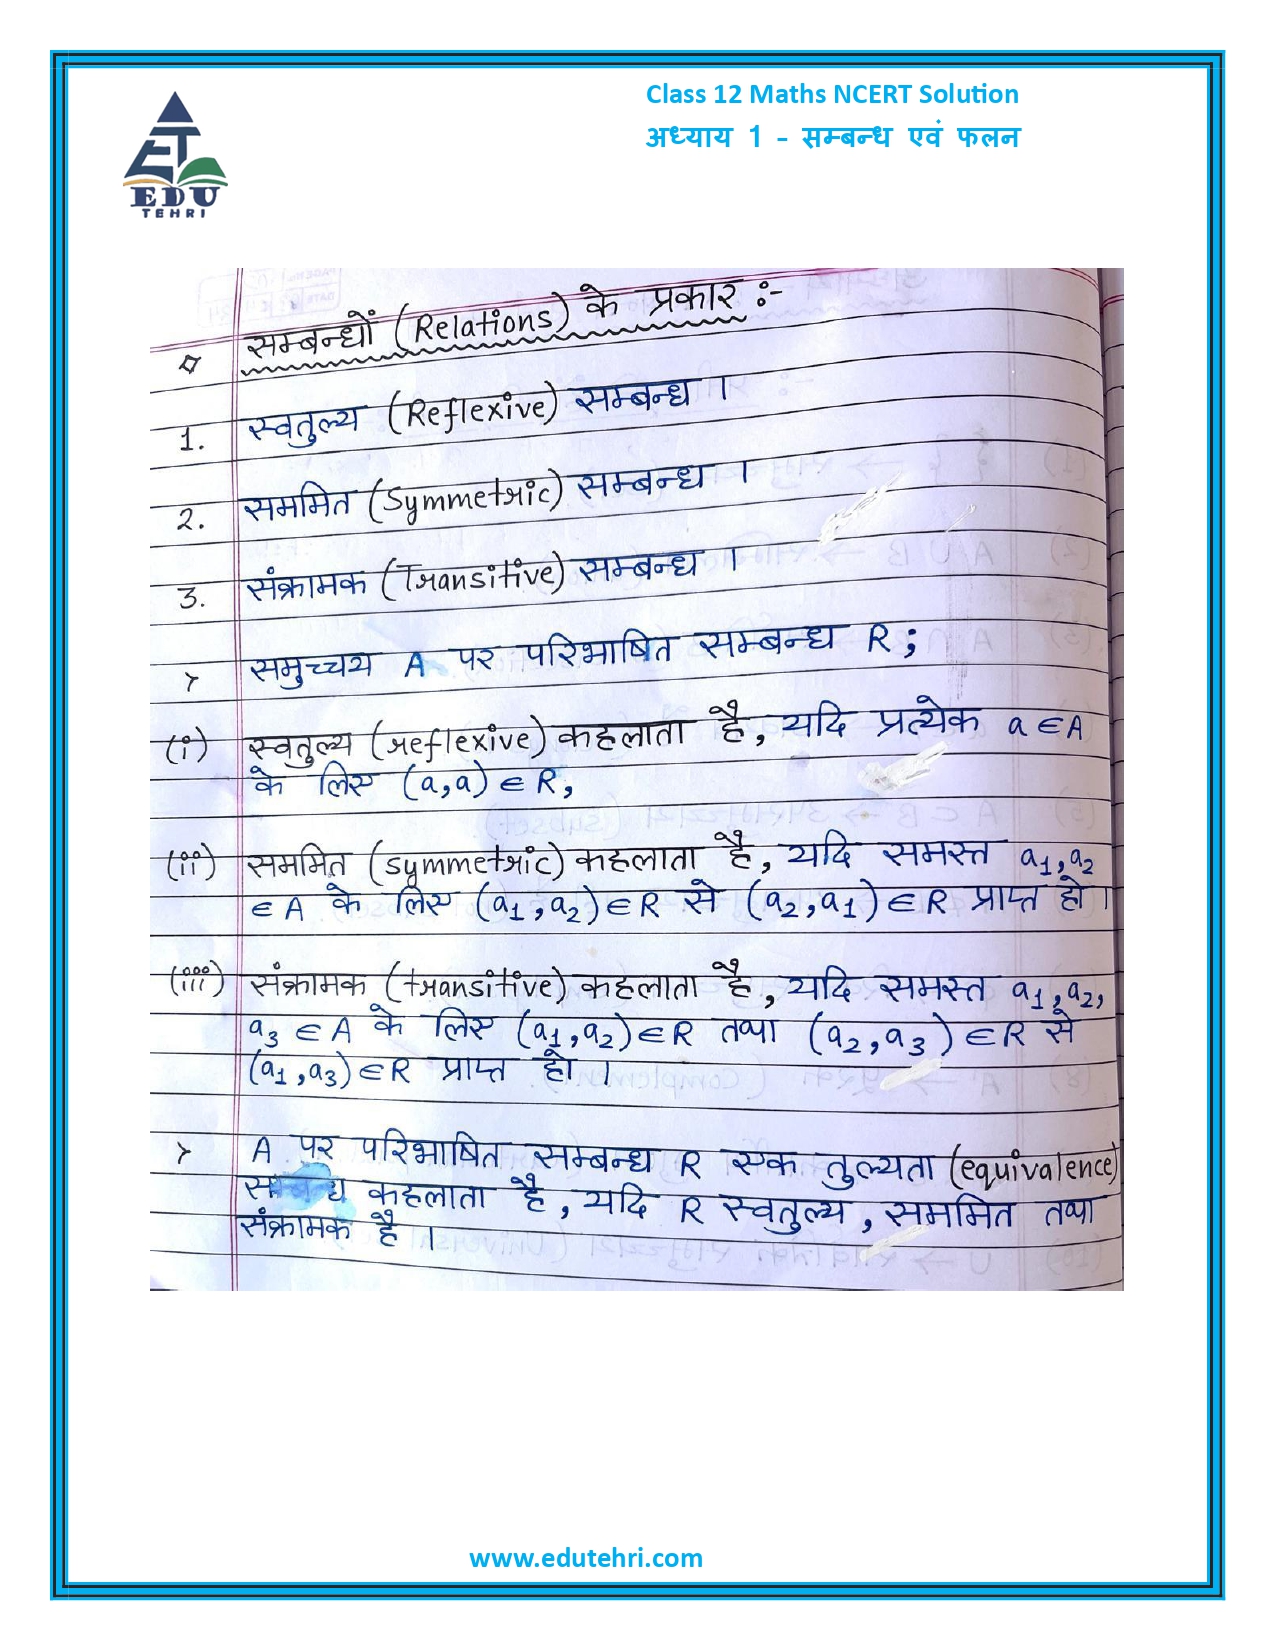 Class 12 Maths NCERT Solution
अध्याय 1 - सम्बन्ध एवं फलन
ET
EDU
TEHRI
सम्बन्धों (Relations) के प्रकार :-
1. स्वतुल्य (Reflexive) सम्बन्ध ।
2. सममित (Symmetric) सम्बन्ध ।
3. संक्रामक (Transitive) सम्बन्ध ।
> समुच्चय A पर परिभाषित सम्बन्ध R ;
(i) स्वतुल्य (reflexive) कहलाता है, यदि प्रत्येक a ∈ A
के लिए (a,a) ∈ R,
(ii) सममित (symmetric) कहलाता है, यदि समस्त a₁,a₂
∈ A के लिए (a₁,a₂) ∈ R से (a₂,a₁) ∈ R प्राप्त हो ।
(iii) संक्रामक (transitive) कहलाता है, यदि समस्त a₁,a₂,
a₃ ∈ A के लिए (a₁,a₂) ∈ R तथा (a₂,a₃) ∈ R से
(a₁,a₃) ∈ R प्राप्त हो ।
> A पर परिभाषित सम्बन्ध R एक तुल्यता (equivalence)
सम्बन्ध कहलाता है, यदि R स्वतुल्य, सममित तथा
संक्रामक है ।
www.edutehri.com